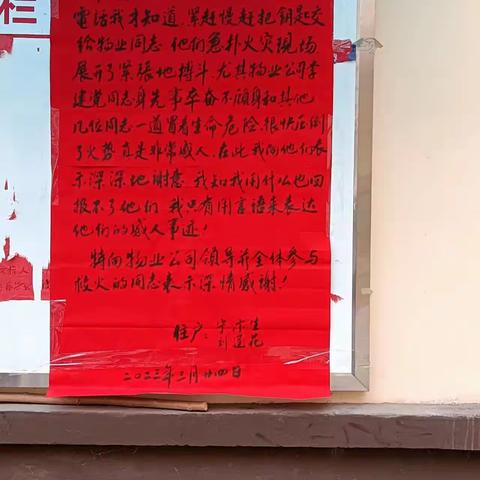 栏
電话我才知道，累赶慢赶把钥匙交
给物业同志，他们急扑火灾现场，
展开了紧張地搏斗，尤其物业公司李
建党同志身先事卒奋不顾身和其他
几位同志一道冒着生命危险，很快压倒
了火势，真是非常感人，在此我向他们表
示深深地謝意，我知我用什么也回
报不了他们，我只有用言语来表达
他们的感人事迹！
特向物业公司领导并全体参与
救火的同志表示深情感謝！
住户：
刘莲花
二0二三年二月廿四日